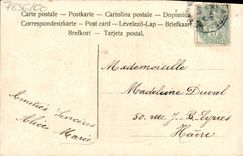 7856/00
Carte postale — Postkarte — Cartolina postale — Dopisnice
Correspondenzkarte — Post card — Levelező-Lap — Briefkaart
Brefkort — Tarjeta postal.
Mademoiselle
Madeleine Duval
50. rue J. B. Eyriès
Havre
Amitiés Sincères
Alice Marie